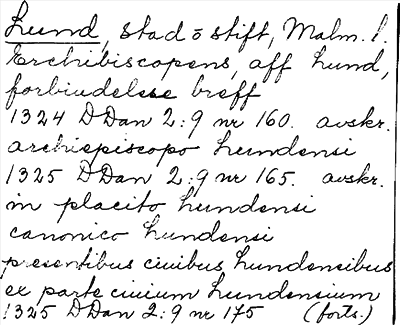 Lund, stad o stift, Malm. l.
Erchibiscopens, aff Lund,
forbiudelsse breff
1324 DDan 2:9 nr 160. avskr.
archiepiscopo Lundensi
1325 DDan 2:9 nr 165. avskr.
in placito Lundensi
canonico Lundensi
presentibus ciuibus Lundensibus
ex parte ciuium Lundensium
1325 DDan 2:9 nr 175 (forts.)